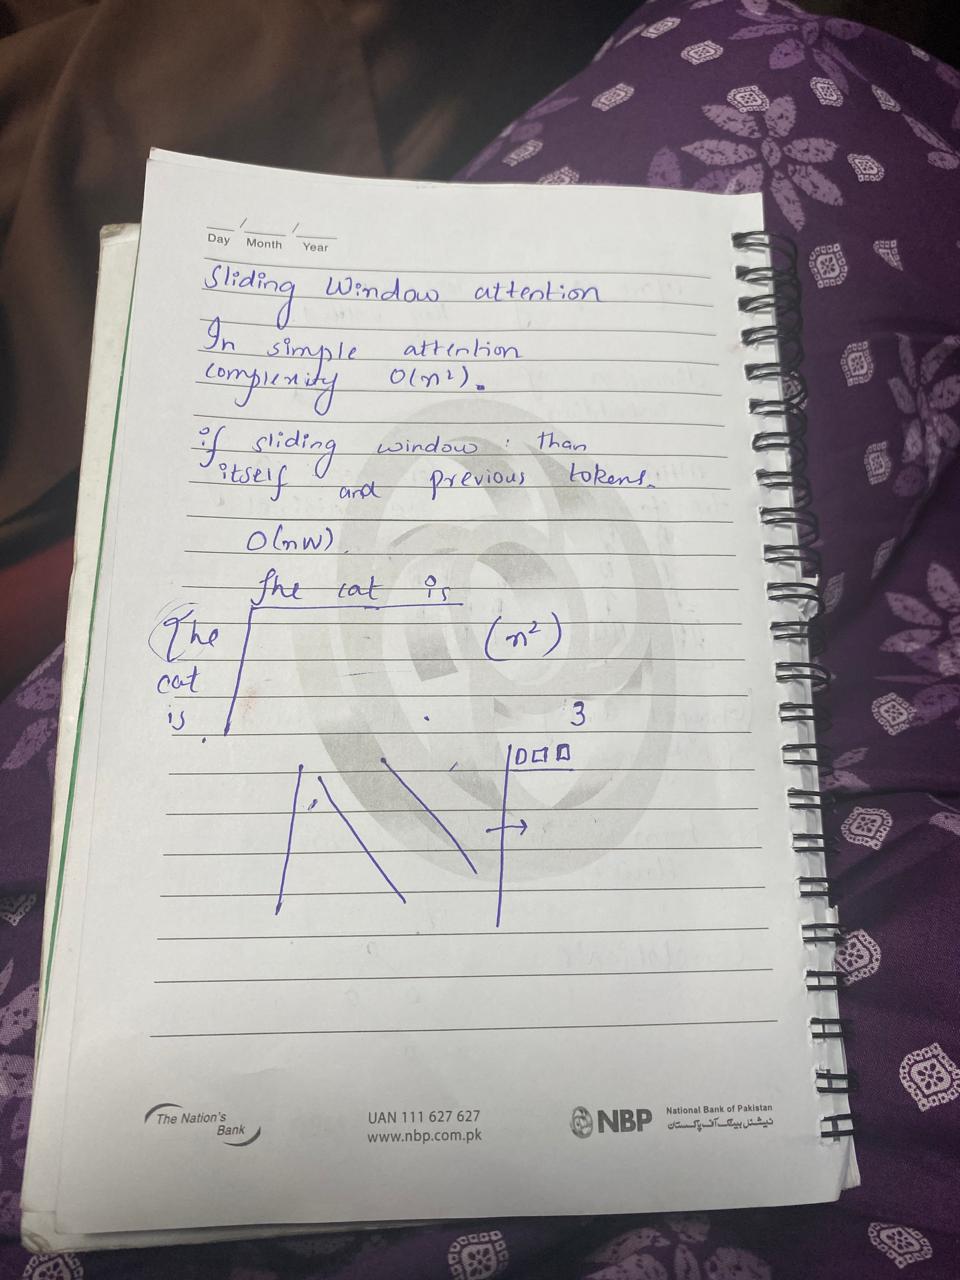 Day / Month / Year
Sliding Window attention
In simple attention
complexity O(n²).
if sliding window : than
itself and previous tokens.
O(nW).
The cat is
The
(n²)
cat
is
3
The Nation's Bank
UAN 111 627 627
www.nbp.com.pk
NBP
National Bank of Pakistan
نیشنل بینک آف پاکستان